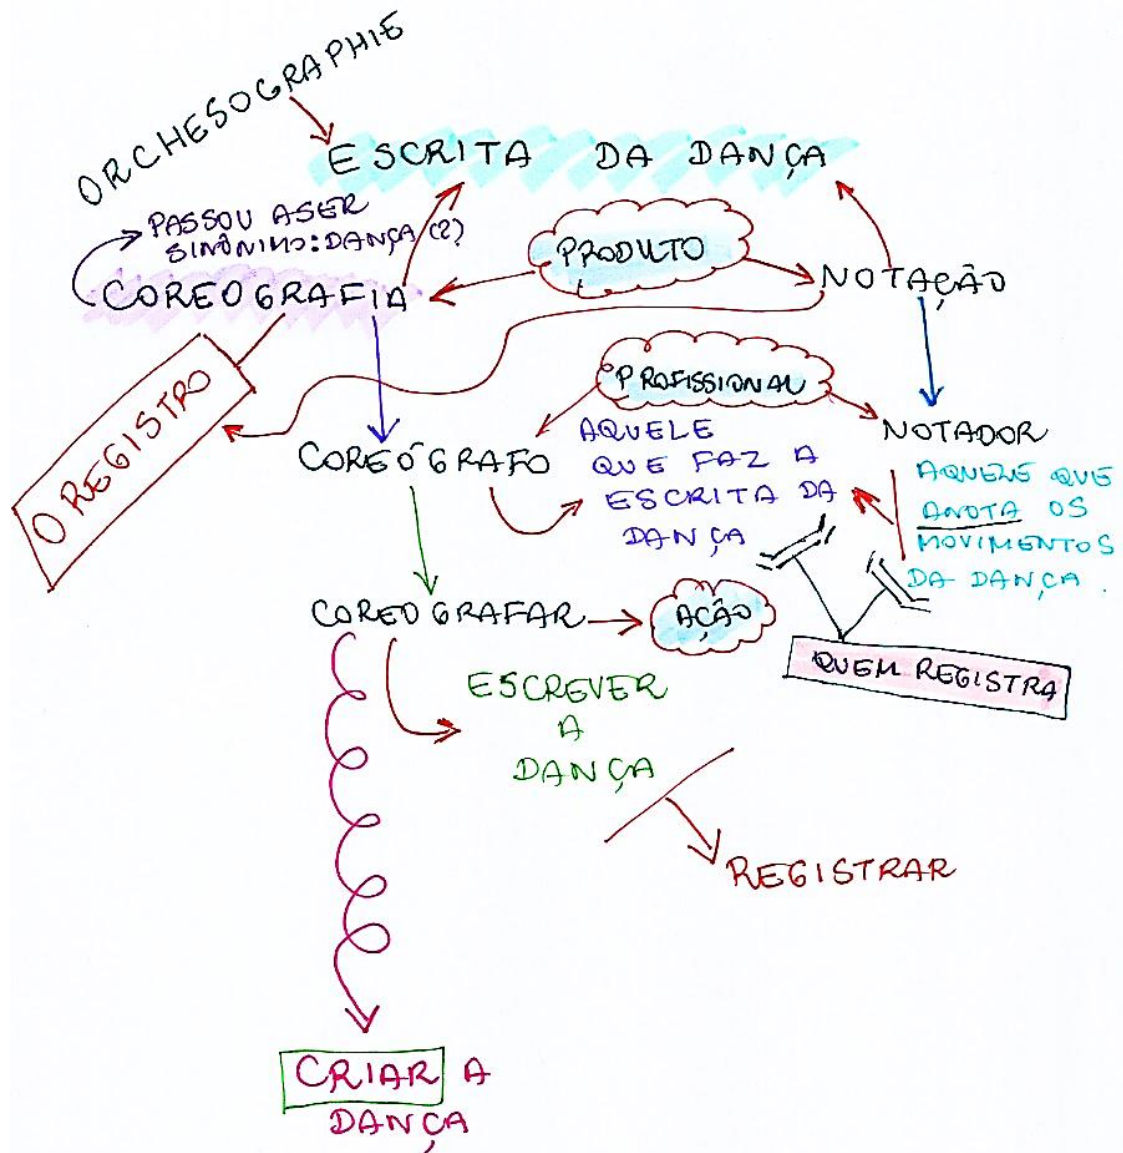 ORCHESOGRAPHIE
ESCRITA DA DANÇA
PASSOU A SER
SINÔNIMO: DANÇA (?)
PRODUTO
COREOGRAFIA
NOTAÇÃO
O REGISTRO
PROFISSIONAL
COREÓGRAFO
AQUELE
QUE FAZ A
ESCRITA DA
DANÇA
NOTADOR
AQUELE QUE
ANOTA OS
MOVIMENTOS
DA DANÇA.
COREOGRAFAR
AÇÃO
QUEM REGISTRA
ESCREVER
A
DANÇA
REGISTRAR
CRIAR A
DANÇA